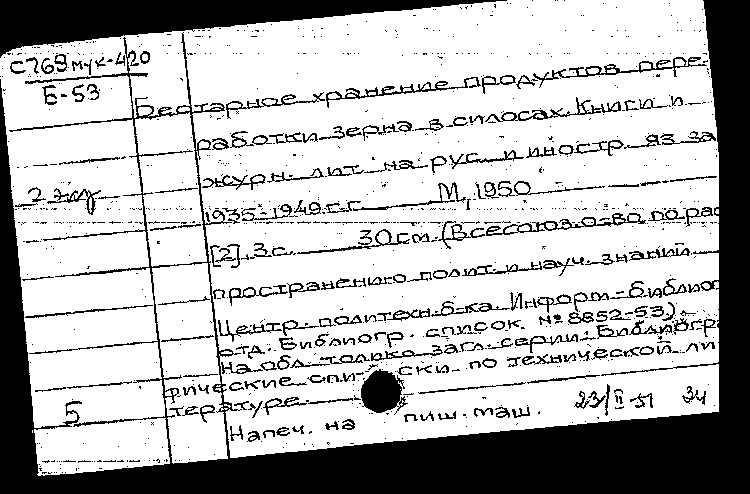 С769мук-420
Б-53
Бестарное хранение продуктов пере-
работки зерна в силосах. Книги и
журн. лит. на рус. и иностр. яз за
2 экз
1935-1949 г.г. М, 1950
[2], 3 с. 30 см. (Всесоюз. о-во по рас
пространению полит. и науч. знаний.
Центр. политехн. б-ка. Информ.-библиог
отд. Библиогр. список. № 8852-53).-
На обл. только загл. серии: Библиогра
фические спи- ски по технической ли
тературе.
5
Напеч. на пиш. маш. 23/II-51 34